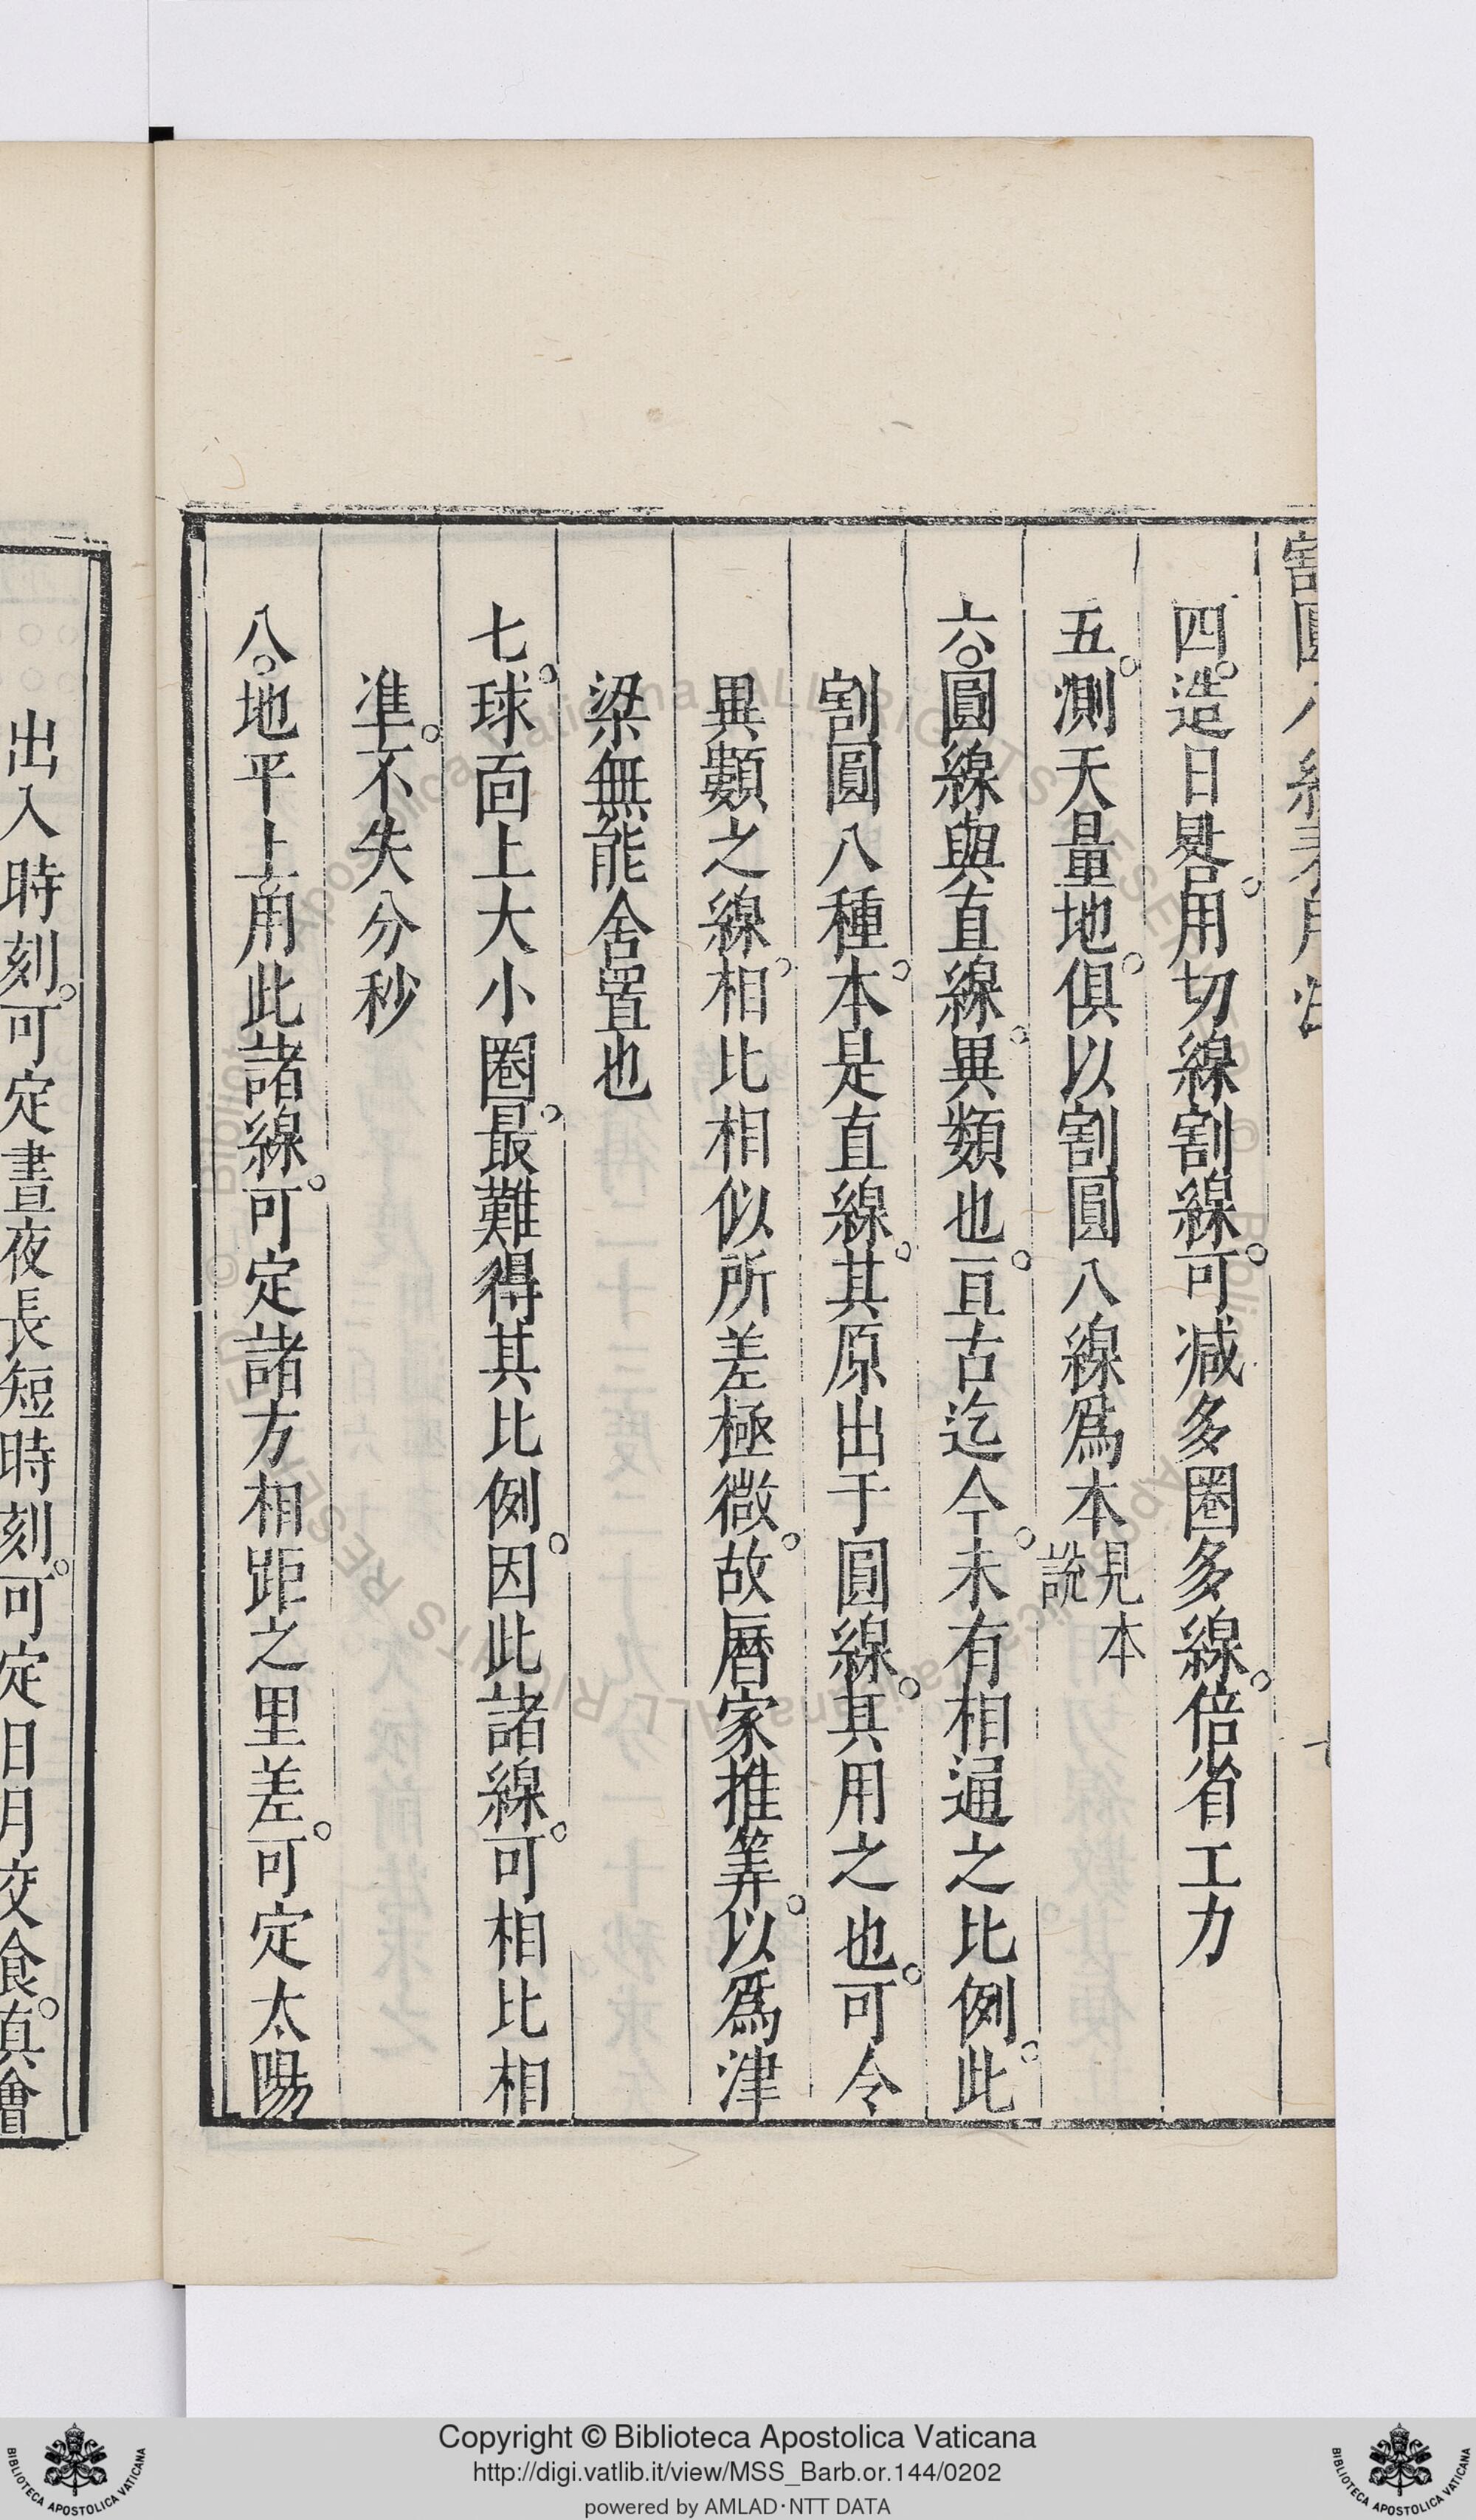 割圓八線表用法
四。造日晷。用切線割線。可減多圈多線。倍省工力
五。測天量地。俱以割圓八線爲本見本說
六。圓線與直線。異類也。亘古迄今。未有相通之比例。此
割圓八種。本是直線。其原出于圓線。其用之也。可令
異類之線。相比相似所差極微。故曆家推筭。以爲津
梁無能舍置也
七。球面上大小圈。最難得其比例。因此諸線。可相比相
準。不失分秒
八。地平上用此諸線。可定諸方相距之里差。可定太陽
出入時刻。可定晝夜長短時刻。可定日月交食。眞會
Copyright © Biblioteca Apostolica Vaticana
http://digi.vatlib.it/view/MSS_Barb.or.144/0202
powered by AMLAD·NTT DATA
BIBLIOTECA APOSTOLICA VATICANA
BIBLIOTECA APOSTOLICA VATICANA